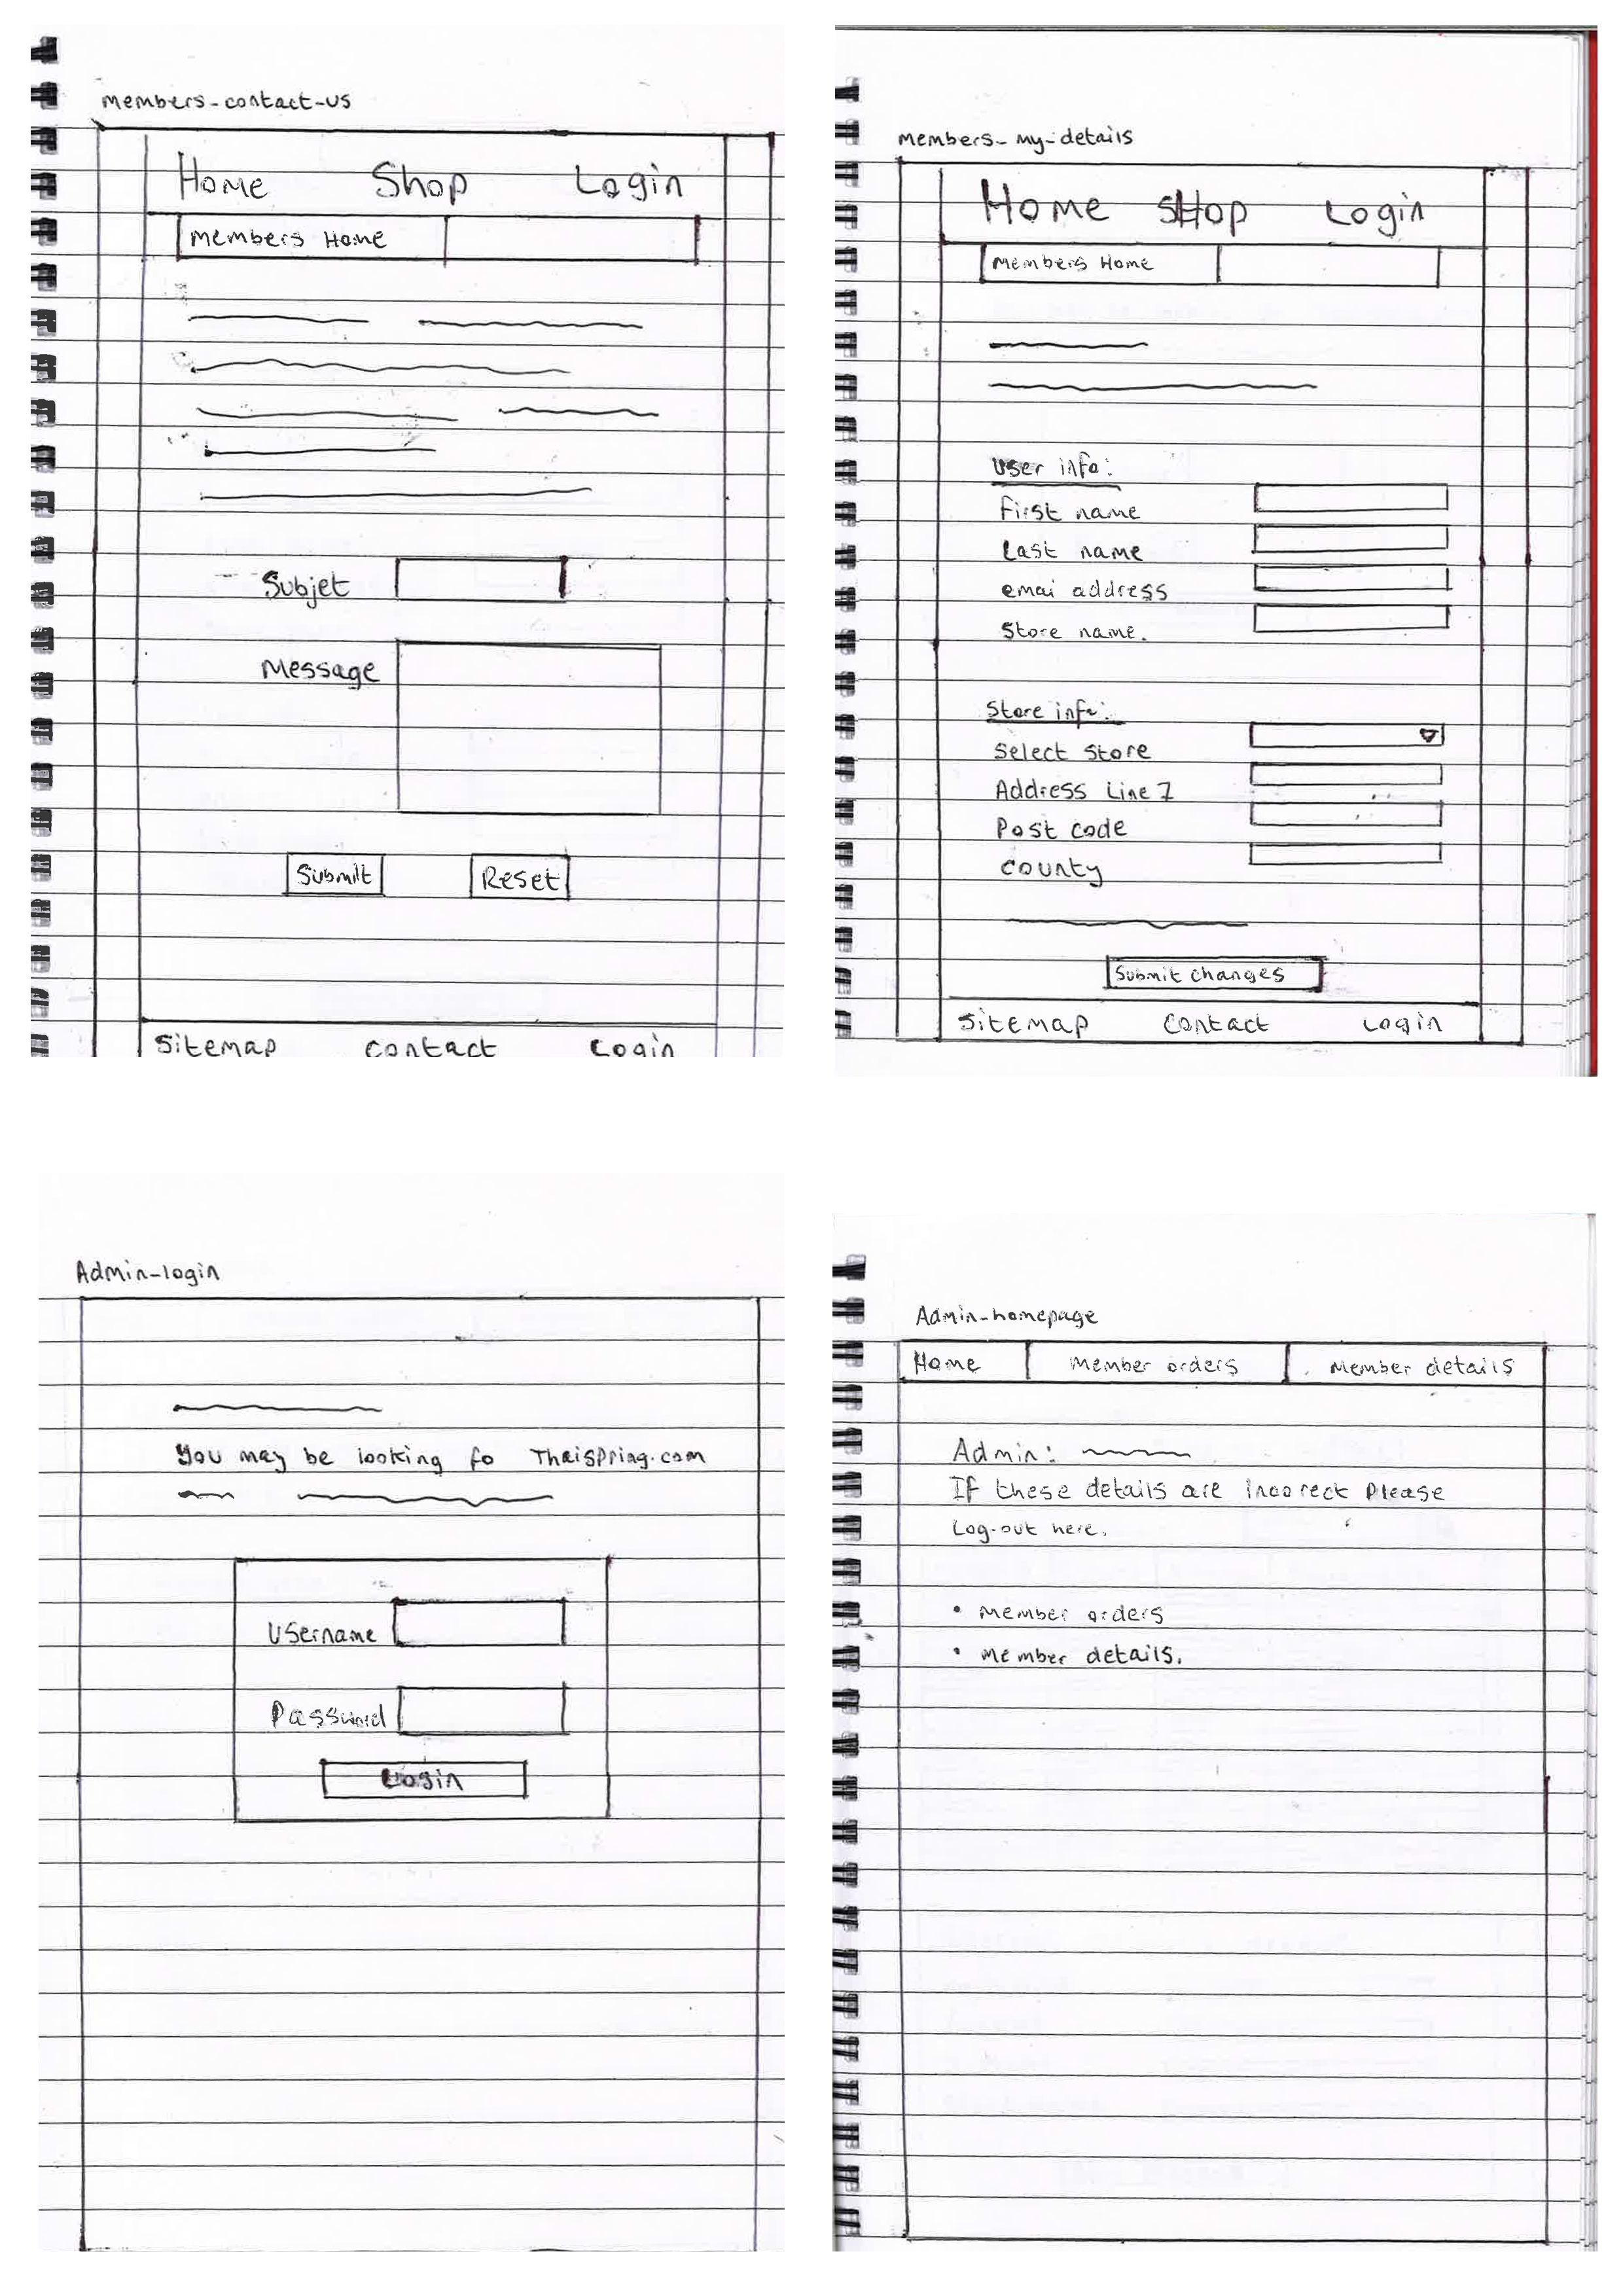 members-contact-us
Home Shop Login
Members Home
Subjet
Message
Submit Reset
Sitemap Contact Login
members-my-details
Home SHop Login
Members Home
User info:
First name
Last name
emai address
Store name.
Store info:
Select Store
Address Line 1
Post code
county
Submit changes
Sitemap Contact Login
Admin-login
You may be looking fo Thaispring.com
Username
Password
Login
Admin-homepage
Home Member orders Member details
Admin:
If these details are incorrect Please
Log-out here.
• Member orders
• Member details.